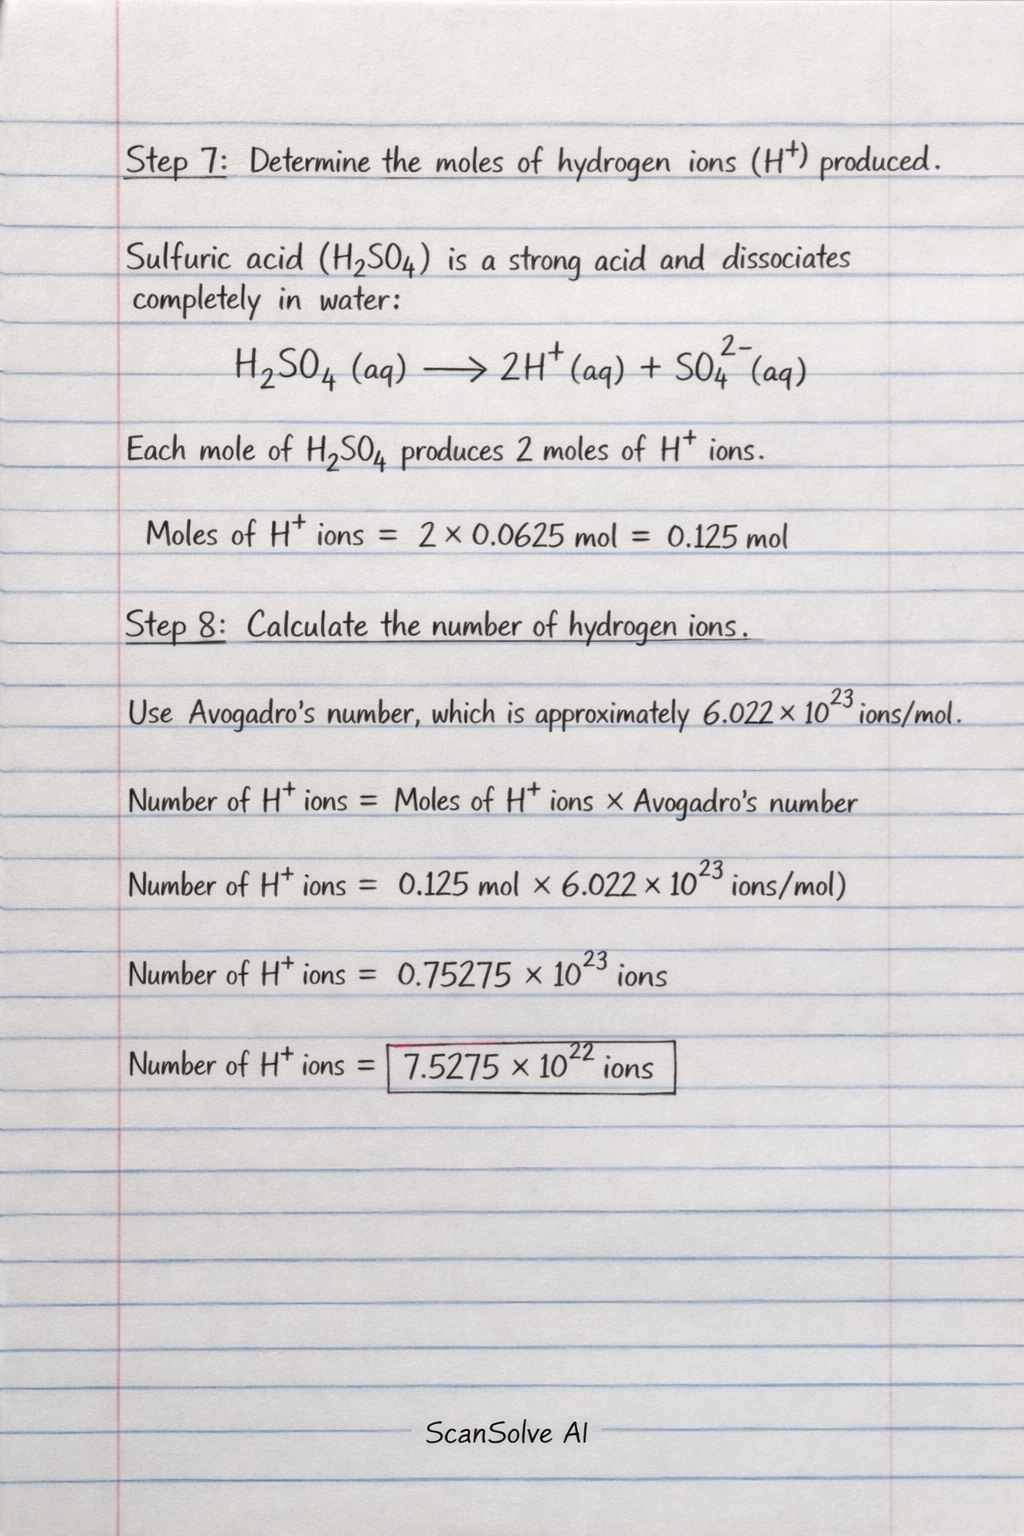 Step 7: Determine the moles of hydrogen ions (H⁺) produced.
Sulfuric acid (H₂SO₄) is a strong acid and dissociates
completely in water:
H₂SO₄ (aq) ⟶ 2H⁺ (aq) + SO₄²⁻ (aq)
Each mole of H₂SO₄ produces 2 moles of H⁺ ions.
Moles of H⁺ ions = 2 × 0.0625 mol = 0.125 mol
Step 8: Calculate the number of hydrogen ions.
Use Avogadro's number, which is approximately 6.022 × 10²³ ions/mol.
Number of H⁺ ions = Moles of H⁺ ions × Avogadro's number
Number of H⁺ ions = 0.125 mol × 6.022 × 10²³ ions/mol)
Number of H⁺ ions = 0.75275 × 10²³ ions
Number of H⁺ ions = 7.5275 × 10²² ions
ScanSolve AI